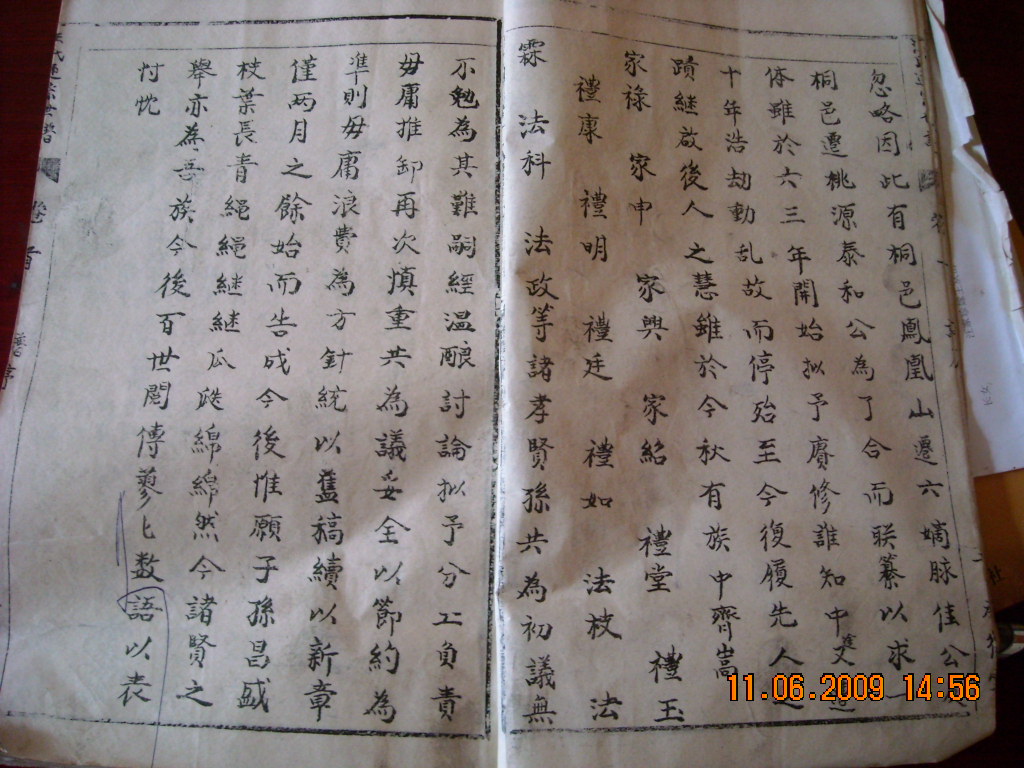 忽略因此有桐邑鳳凰山遷六嫡脉佳公
桐邑遷桃源泰和公為了合而联纂以求一
体雖於六三年開始拟予賡修誰知中途文
十年浩劫動乱故而停殆至今復履先人之
蹟継啟後人之慧雖於今秋有族中齊嵩
家祿 家申 家興 家紹 禮堂 禮玉
禮康 禮明 禮廷 禮如 法枝 法
霖 法科 法政等諸孝賢孫共為初議無
不勉為其難嗣經温釀討論拟予分工負責
毋庸推卸再次慎重共為議妥全以節約為
準則毋庸浪費為方針統以舊稿續以新章
僅兩月之餘始而告成今後惟願子孫昌盛
枝葉長青繩繩継継瓜瓞綿綿然今諸賢之
舉亦為吾族今後百世閥傳蓼匕数語以表
忖忱
卷首
11.06.2009 14:56